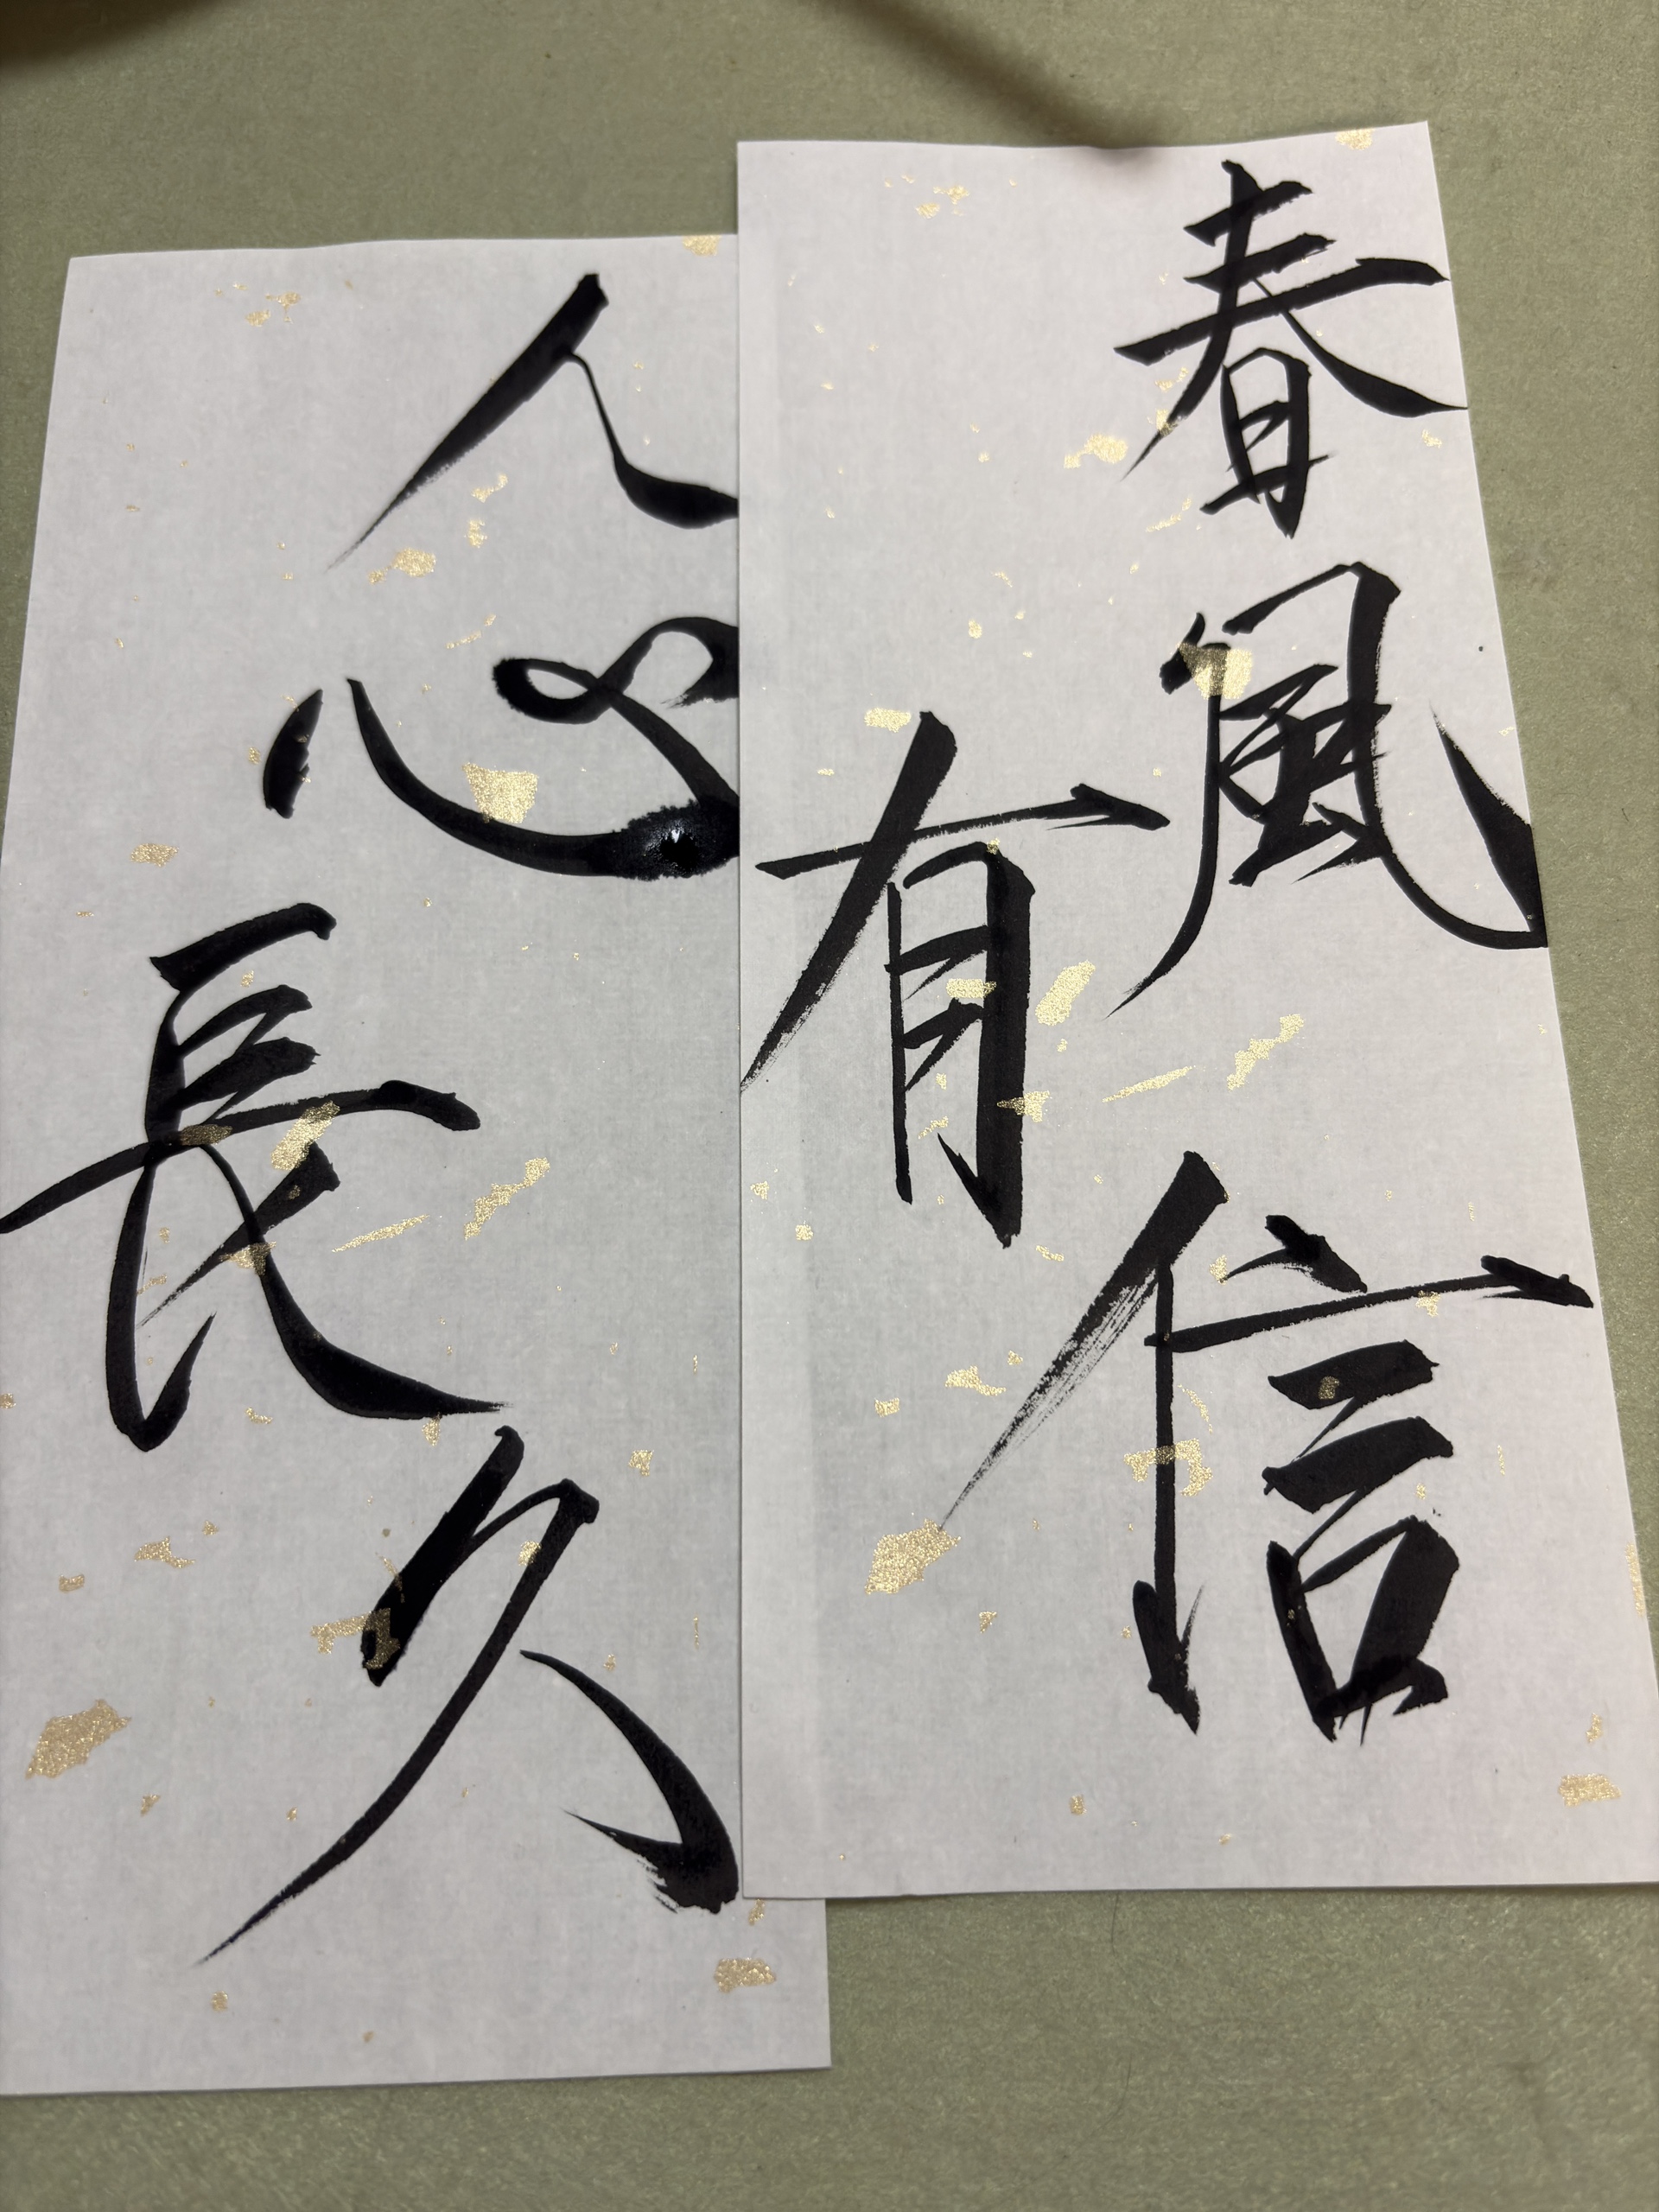 春風有信
人心長久